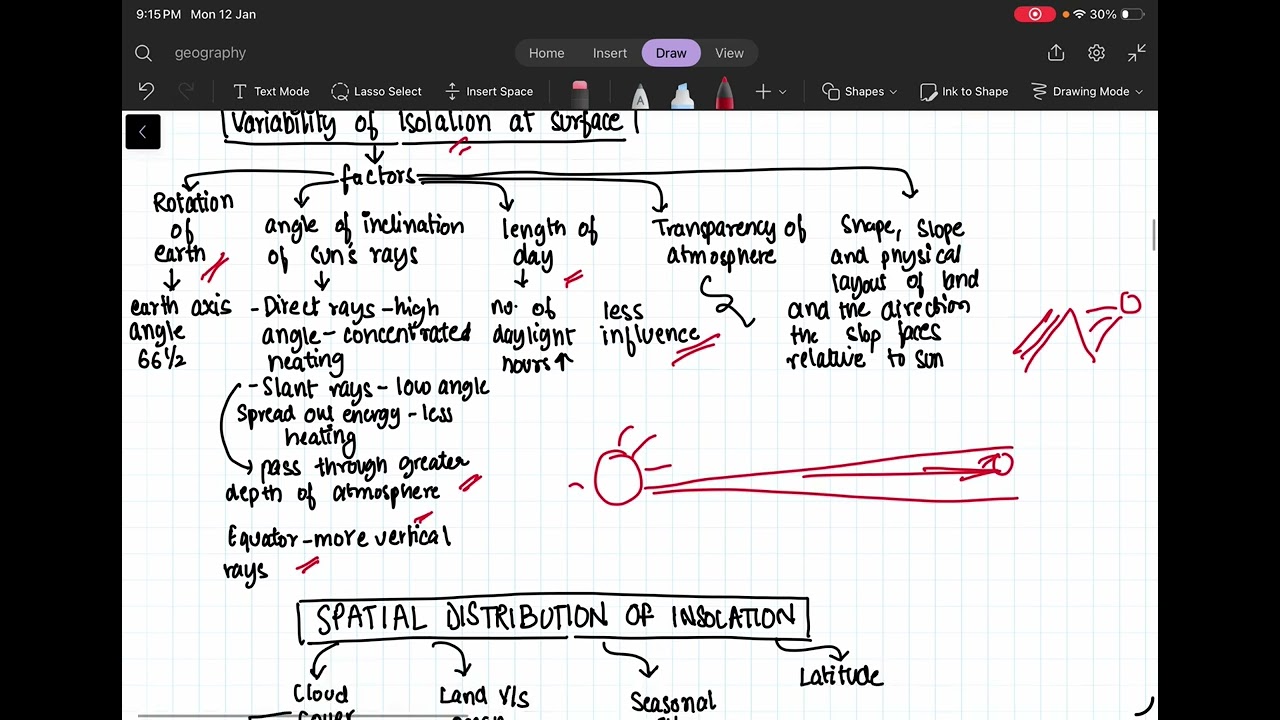 9:15 PM Mon 12 Jan
30%
geography
Home Insert Draw View
Text Mode Lasso Select Insert Space Shapes Ink to Shape Drawing Mode
Variability of Isolation at surface
factors
Rotation
of
earth
earth axis
angle
66½
angle of inclination
of sun's rays
-Direct rays-high
angle-concentrated
heating
-Slant rays - low angle
Spread out energy - less
heating
pass through greater
depth of atmosphere
Equator-more vertical
rays
length of
day
no. of
daylight
hours↑
Transparency of
atmosphere
less
influence
Shape, slope
and physical
layout of land
and the direction
the slop faces
relative to sun
SPATIAL DISTRIBUTION OF INSOLATION
Cloud
cover
Land V/s
ocean
Seasonal
Latitude